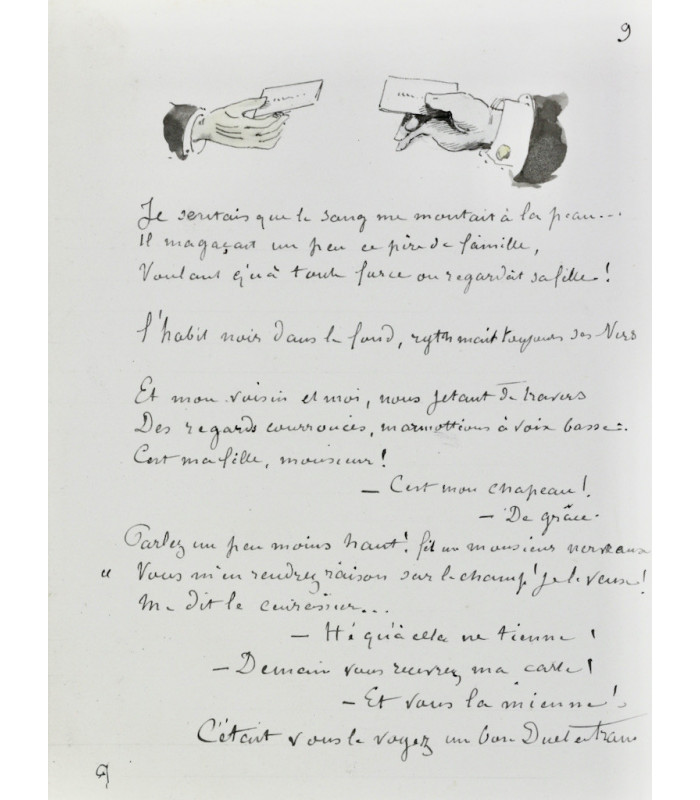 9
Je sentais que le sang me montait à la peau...
Il m'agaçait un peu ce père de famille,
Voulant qu'à toute force on regardât sa fille !
L'habit noir dans le fond, rythmait toujours ses Vers
Et mon voisin et moi, nous jetant de travers
Des regards courroucés, marmottions à voix basse :
C'est ma fille, monsieur !
— C'est mon chapeau !
— De grâce.
Parlez un peu moins haut ! fit un monsieur nerveux
" Vous m'en rendrez raison sur le champ ! Je le veux !
Me dit le cuirassier...
— Hé qu'à cela ne tienne !
— Demain vous recevrez ma carte !
— Et vous la mienne !
C'était vous le voyez un bon Duel en train
9